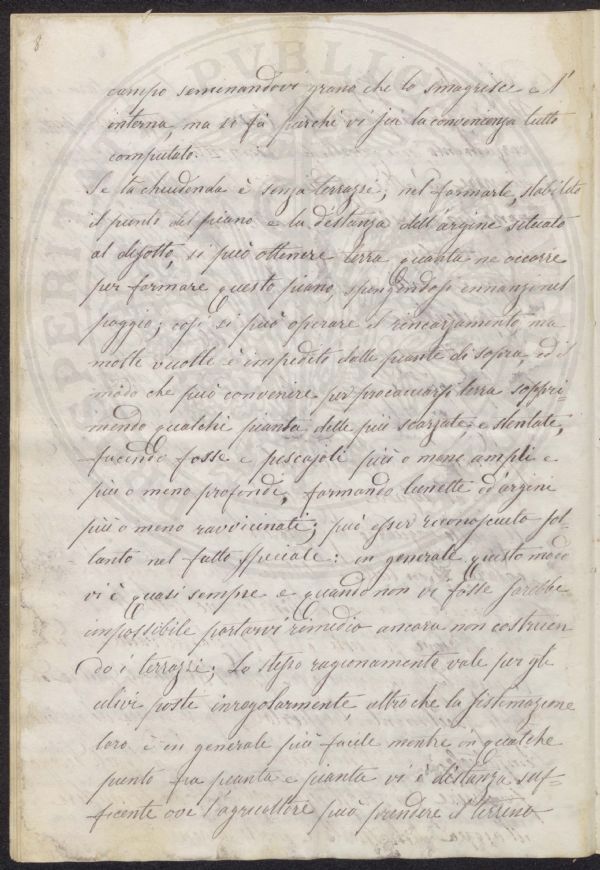 8
campo seminandovi grano che lo smagrisce e l'
interna, ma si fà purchè vi sia la convenienza tutto
computato.
Se la chiudenda è senza terrazzi; nel formarle, stabilito
il punto del piano e la distanza dell'argine situato
al disotto, si può ottenere terra quanta ne occorre
per formare questo piano, spingendosi innanzi nel
poggio; così si può operare il rincarzamento, ma
molte vuolte è impedito dalle piante di sopra, ed il
modo che può convenire per procacciarsi terra soppri-
mendo qualche pianta delle più scarzate e stentate,
facendo fosse e pescajoli più o mane ampli e
più o meno profondi, formando lunette ed argini
più o meno ravvicinati; può esser riconosciuto sol-
tanto nel fatto speciale: in generale questo modo
vi è quasi sempre e quando non vi fosse sarebbe
impossibile portarvi rimedio ancora non costruen
do i terrazzi; Lo stesso ragionamento vale per gli
ulivi poste inregolarmente, altro che la sistemazione
loro è in generale più facile mentre in qualche
punto fra pianta e pianta vi è distanza suf-
ficente ove l'agricoltore può prendere il terreno
PUBLICA
PROSPERITA